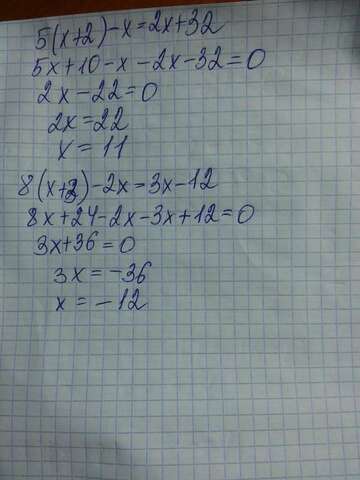 5(x+2)-x=2x+32
5x+10-x-2x-32=0
2x-22=0
2x=22
x=11
8(x+3)-2x=3x-12
8x+24-2x-3x+12=0
3x+36=0
3x=-36
x=-12